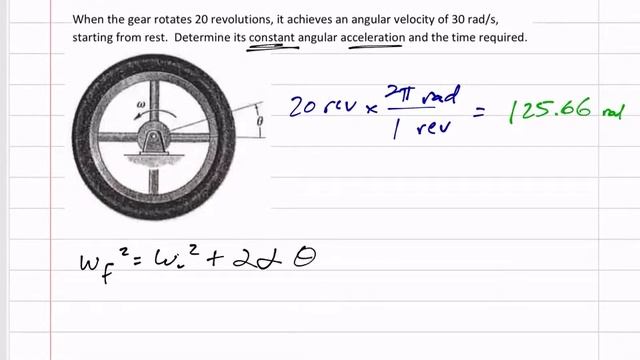 When the gear rotates 20 revolutions, it achieves an angular velocity of 30 rad/s,
starting from rest. Determine its constant angular acceleration and the time required.
ω
θ
20 rev × 2π rad / 1 rev = 125.66 rad
ω_f² = ω_i² + 2αθ